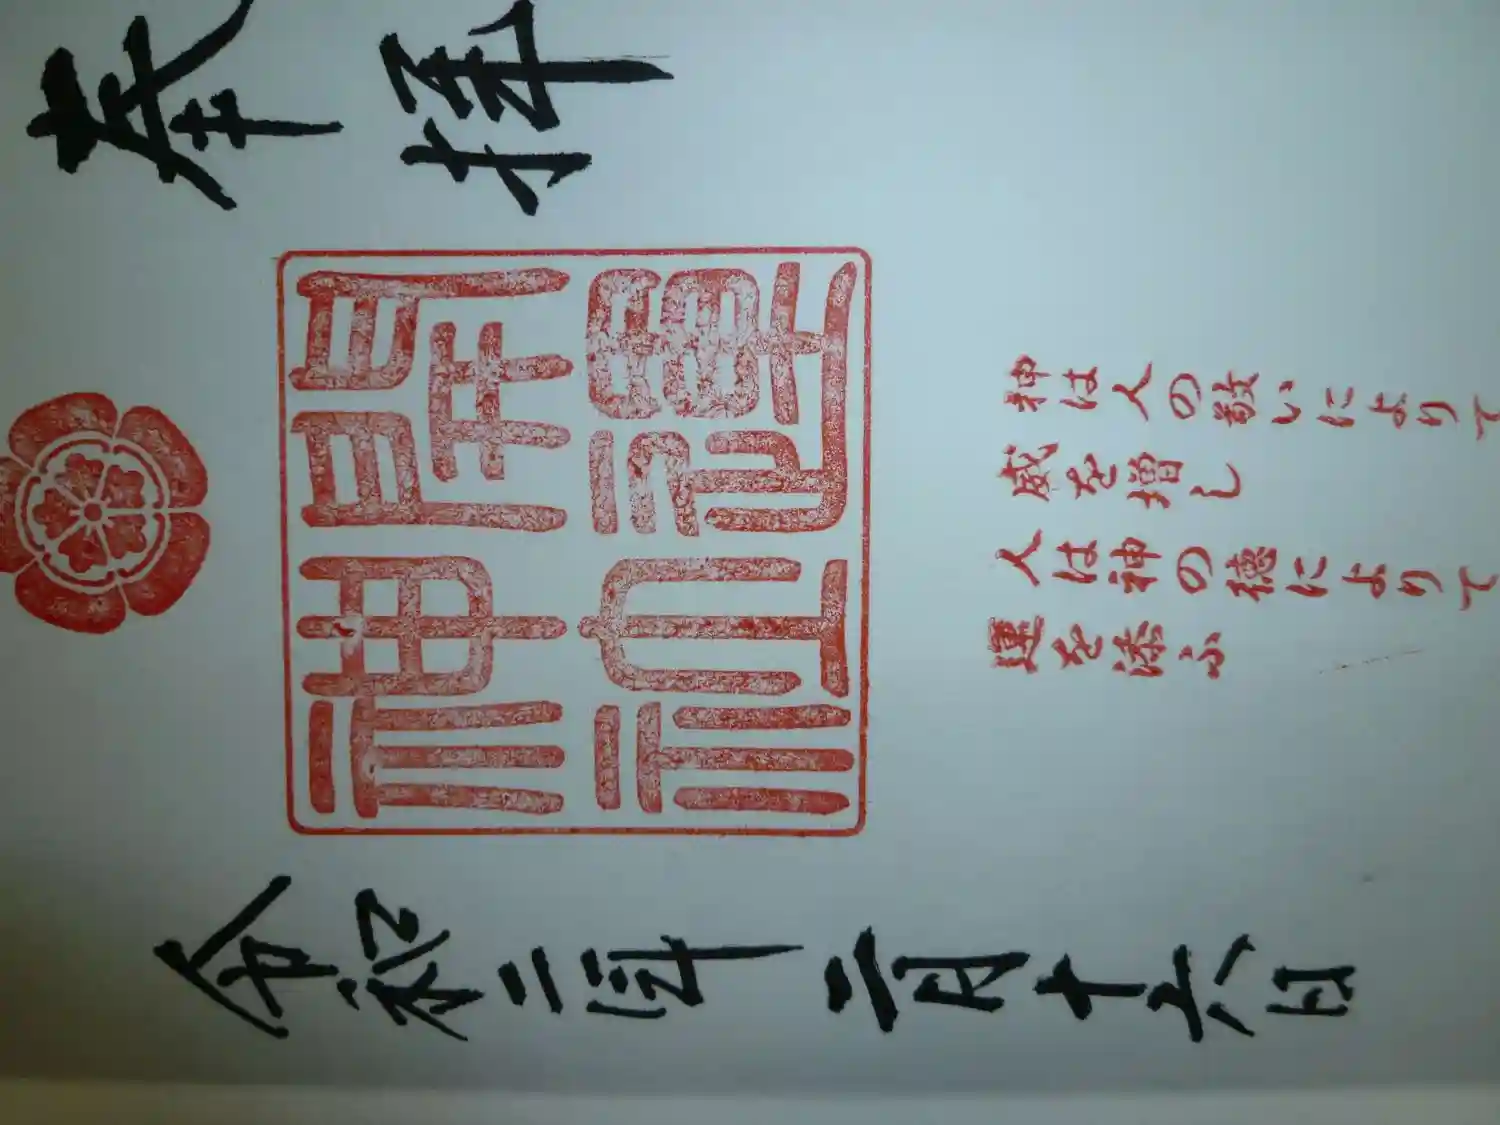 奉拝
開運
神社
令和二年二月十六日
神は人の敬いによりて
威を増し
人は神の徳によりて
運を添ふ